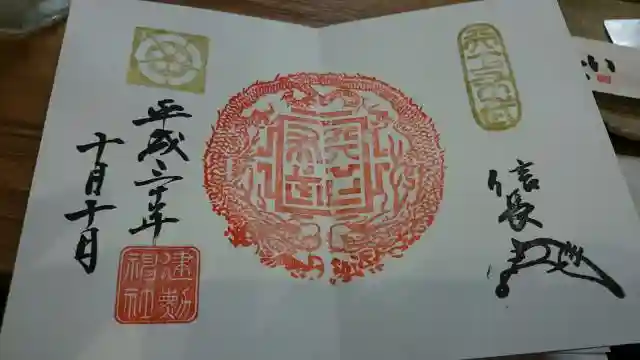 天下布武
信長
天下布武
平成三十年
十月十日
建勲神社